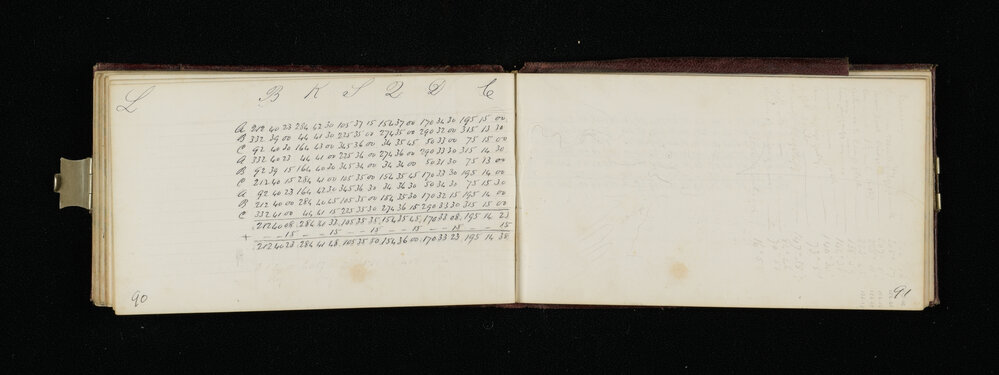 L B K S Q D C
A 212 40 23 284 42 30 105 37 15 154 37 00 170 34 30 195 15 00
B 332 39 00 44 41 30 225 35 00 274 35 00 290 32 00 315 13 30
C 92 40 30 164 43 00 345 36 00 34 35 45 50 33 00 75 15 00
A 332 40 23 44 41 00 225 36 00 274 36 00 290 33 30 315 14 30
B 92 39 15 164 40 30 345 34 00 34 34 00 50 31 30 75 13 00
C 212 40 15 284 41 00 105 35 00 154 35 45 170 33 30 195 14 00
A 92 40 23 164 42 30 345 36 30 34 36 30 50 34 30 75 15 30
B 212 40 00 284 40 45 105 35 00 154 35 30 170 32 15 195 14 00
C 332 41 00 44 41 15 225 35 30 274 36 15 290 33 30 315 15 00
212 40 08 284 41 33 105 35 35 154 35 45 170 33 08 195 14 23
+ 15 15 15 15 15 15
212 40 23 284 41 48 105 35 50 154 36 00 170 33 23 195 14 38
90
91